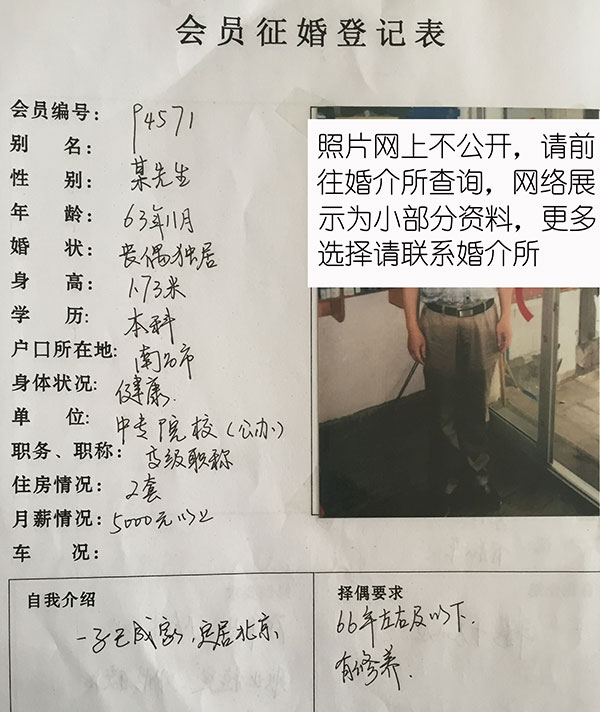 会员征婚登记表
会员编号: P4571
别 名:
性 别: 某先生
年 龄: 63年11月
婚 状: 丧偶独居
身 高: 1.73米
学 历: 本科
户口所在地: 南昌市
身体状况: 健康.
单 位: 中专院校(公办)
职务、职称: 高级职称
住房情况: 2套
月薪情况: 5000元以上
车 况:
照片网上不公开，请前
往婚介所查询，网络展
示为小部分资料，更多
选择请联系婚介所
自我介绍
一子已成家，定居北京、
择偶要求
66年左右及以下.
有修养.